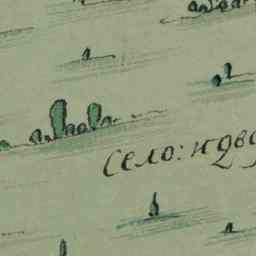 село: идво